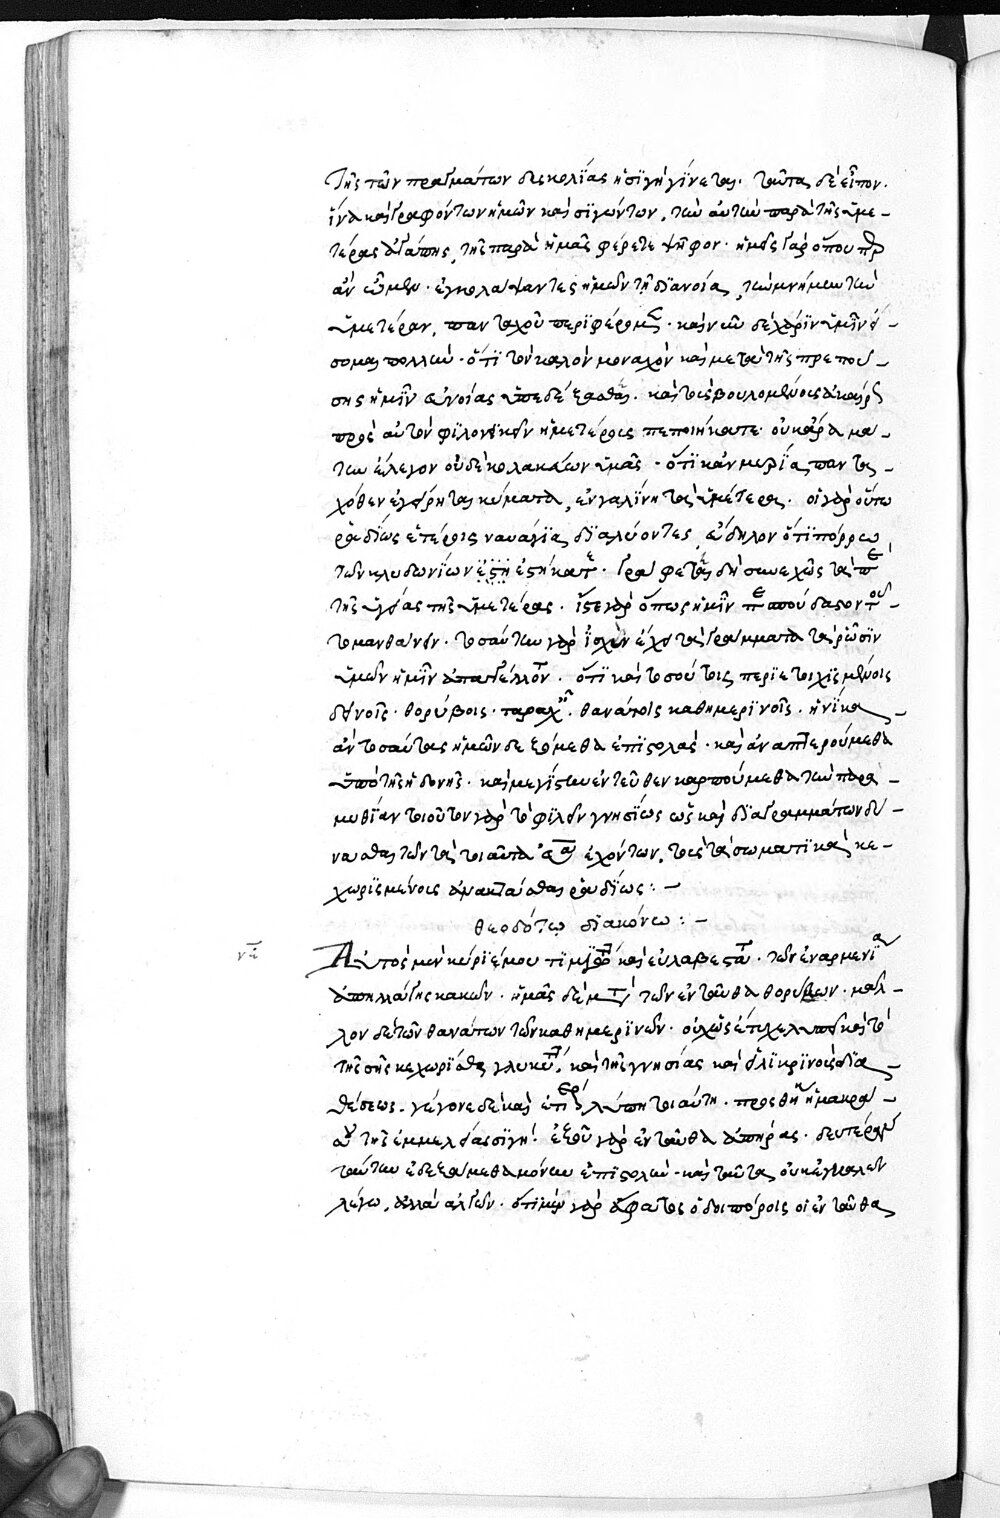 τῆς τῶν πραγμάτων δυσκολίας ἡ σιγὴ γίνεται. ταῦτα δὲ εἶπον.
ἵνα καὶ γραφόντων ἡμῶν καὶ σιγώντων, τὴν αὐτὴν παρὰ τῆς ὑμε-
τέρας ἀγάπης, τῆς παρὰ ἡμᾶς φέρετε ψῆφον. ἡμεῖς γὰρ ὅπου περ
ἂν ὦμεν. ἐγκολάψαντες ἡμῶν τῇ διανοίᾳ, τὴν μνήμην τὴν
ὑμετέραν, πανταχοῦ περιφέρομεν. καὶ νῦν δὲ χάριν ὑμῖν
σομαι πολλὴν. ὅτι τὸν καλὸν μοναχὸν καὶ μετὰ τῆς πρεπού-
σης ἡμῖν εὐνοίας ὑπεδέξασθαι. καὶ τοὺς βουλομένους ἀκαίρως
πρὸς αὐτὸν φιλονεικεῖν ἡμετέρους πεποιήκατε. οὐκ ἄρα μά-
την ἔλεγον οὐδὲ κολακεύων ὑμᾶς. ὅτι κἂν μυρία παντα-
χόθεν ἐγείρηται κύματα, ἐν γαλήνῃ τὰ ὑμέτερα. οἱ γὰρ οὕτω
ῥᾳδίως ἑτέροις ναυάγια διαλύοντες, εὔδηλον ὅτι πόρρω
τῶν κλυδωνίων ἑστήκατε. γράφεται δὴ συνεχῶς τὰ περὶ
τῆς ὑγείας τῆς ὑμετέρας. ἴστε γὰρ ὅπως ἡμῖν περισπούδαστον τοῦ-
το μανθάνειν. τοσαύτην γὰρ ἰσχὺν ἔχει τὰ γράμματα τὰ ῥῶσιν
ὑμῶν ἡμῖν ἀπαγέλλοντα. ὅτι καὶ τοσούτοις περιστοιχισμένοις
δεινοῖς. θορύβοις. ταραχαῖς. θανάτοις καθημερινοῖς. ἡνίκα
ἂν τοσαύτας ἡμῶν δεξόμεθα ἐπιστολὰς. καὶ ἀναπτερούμεθα
ὑπὸ τῆς ἡδονῆς. καὶ μεγίστην ἐντεῦθεν καρπούμεθα τὴν παρα-
μυθίαν τοιοῦτον γὰρ τὸ φιλεῖν γνησίως ὡς καὶ διὰ γραμμάτων δύ-
νασθαι τῶν τὰ τοιαῦτα ἐχόντων, τοὺς τὰ σωματικὰ κε-
χωρισμένους ἀνακτᾶσθαι ῥᾳδίως: —
θεοδότῳ διακόνῳ: —
νζ Αὐτὸς μὲν κύριέ μου τιμιώτατε καὶ εὐλαβέστατε. τῶν ἐν ἀρμενίᾳ
ἀπηλλάγης κακῶν. ἡμᾶς δὲ μετὰ τῶν ἐνταῦθα θορύβων. μᾶλ-
λον δὲ τῶν θανάτων τῶν καθημερινῶν. οἰχῶς ἔτι χειμὼν καὶ τὸ
τῆς σῆς κεχωρίσθαι γλυκύτητος. καὶ τῆς γνησίας καὶ εἰλικρινοῦς δια-
θέσεως. γέγονε δὲ καὶ ἑτέρα λύπη τοιαύτη. προσθήκη ἡ μακρὰ
αὕτη τῆς ἐμμελείας σιγή. ἐξ οὗ γὰρ ἐνταῦθα ἀπῆρας. δευτέραν
ταύτην ἐδεξάμεθα μόνην ἐπιστολὴν. καὶ ταῦτα οὐκ ἐγκαλῶν
λέγω, ἀλλὰ ἀλγῶν. ὅτι μὲν γὰρ ἄφατος ὁδοιπόροις οἱ ἐνταῦθα